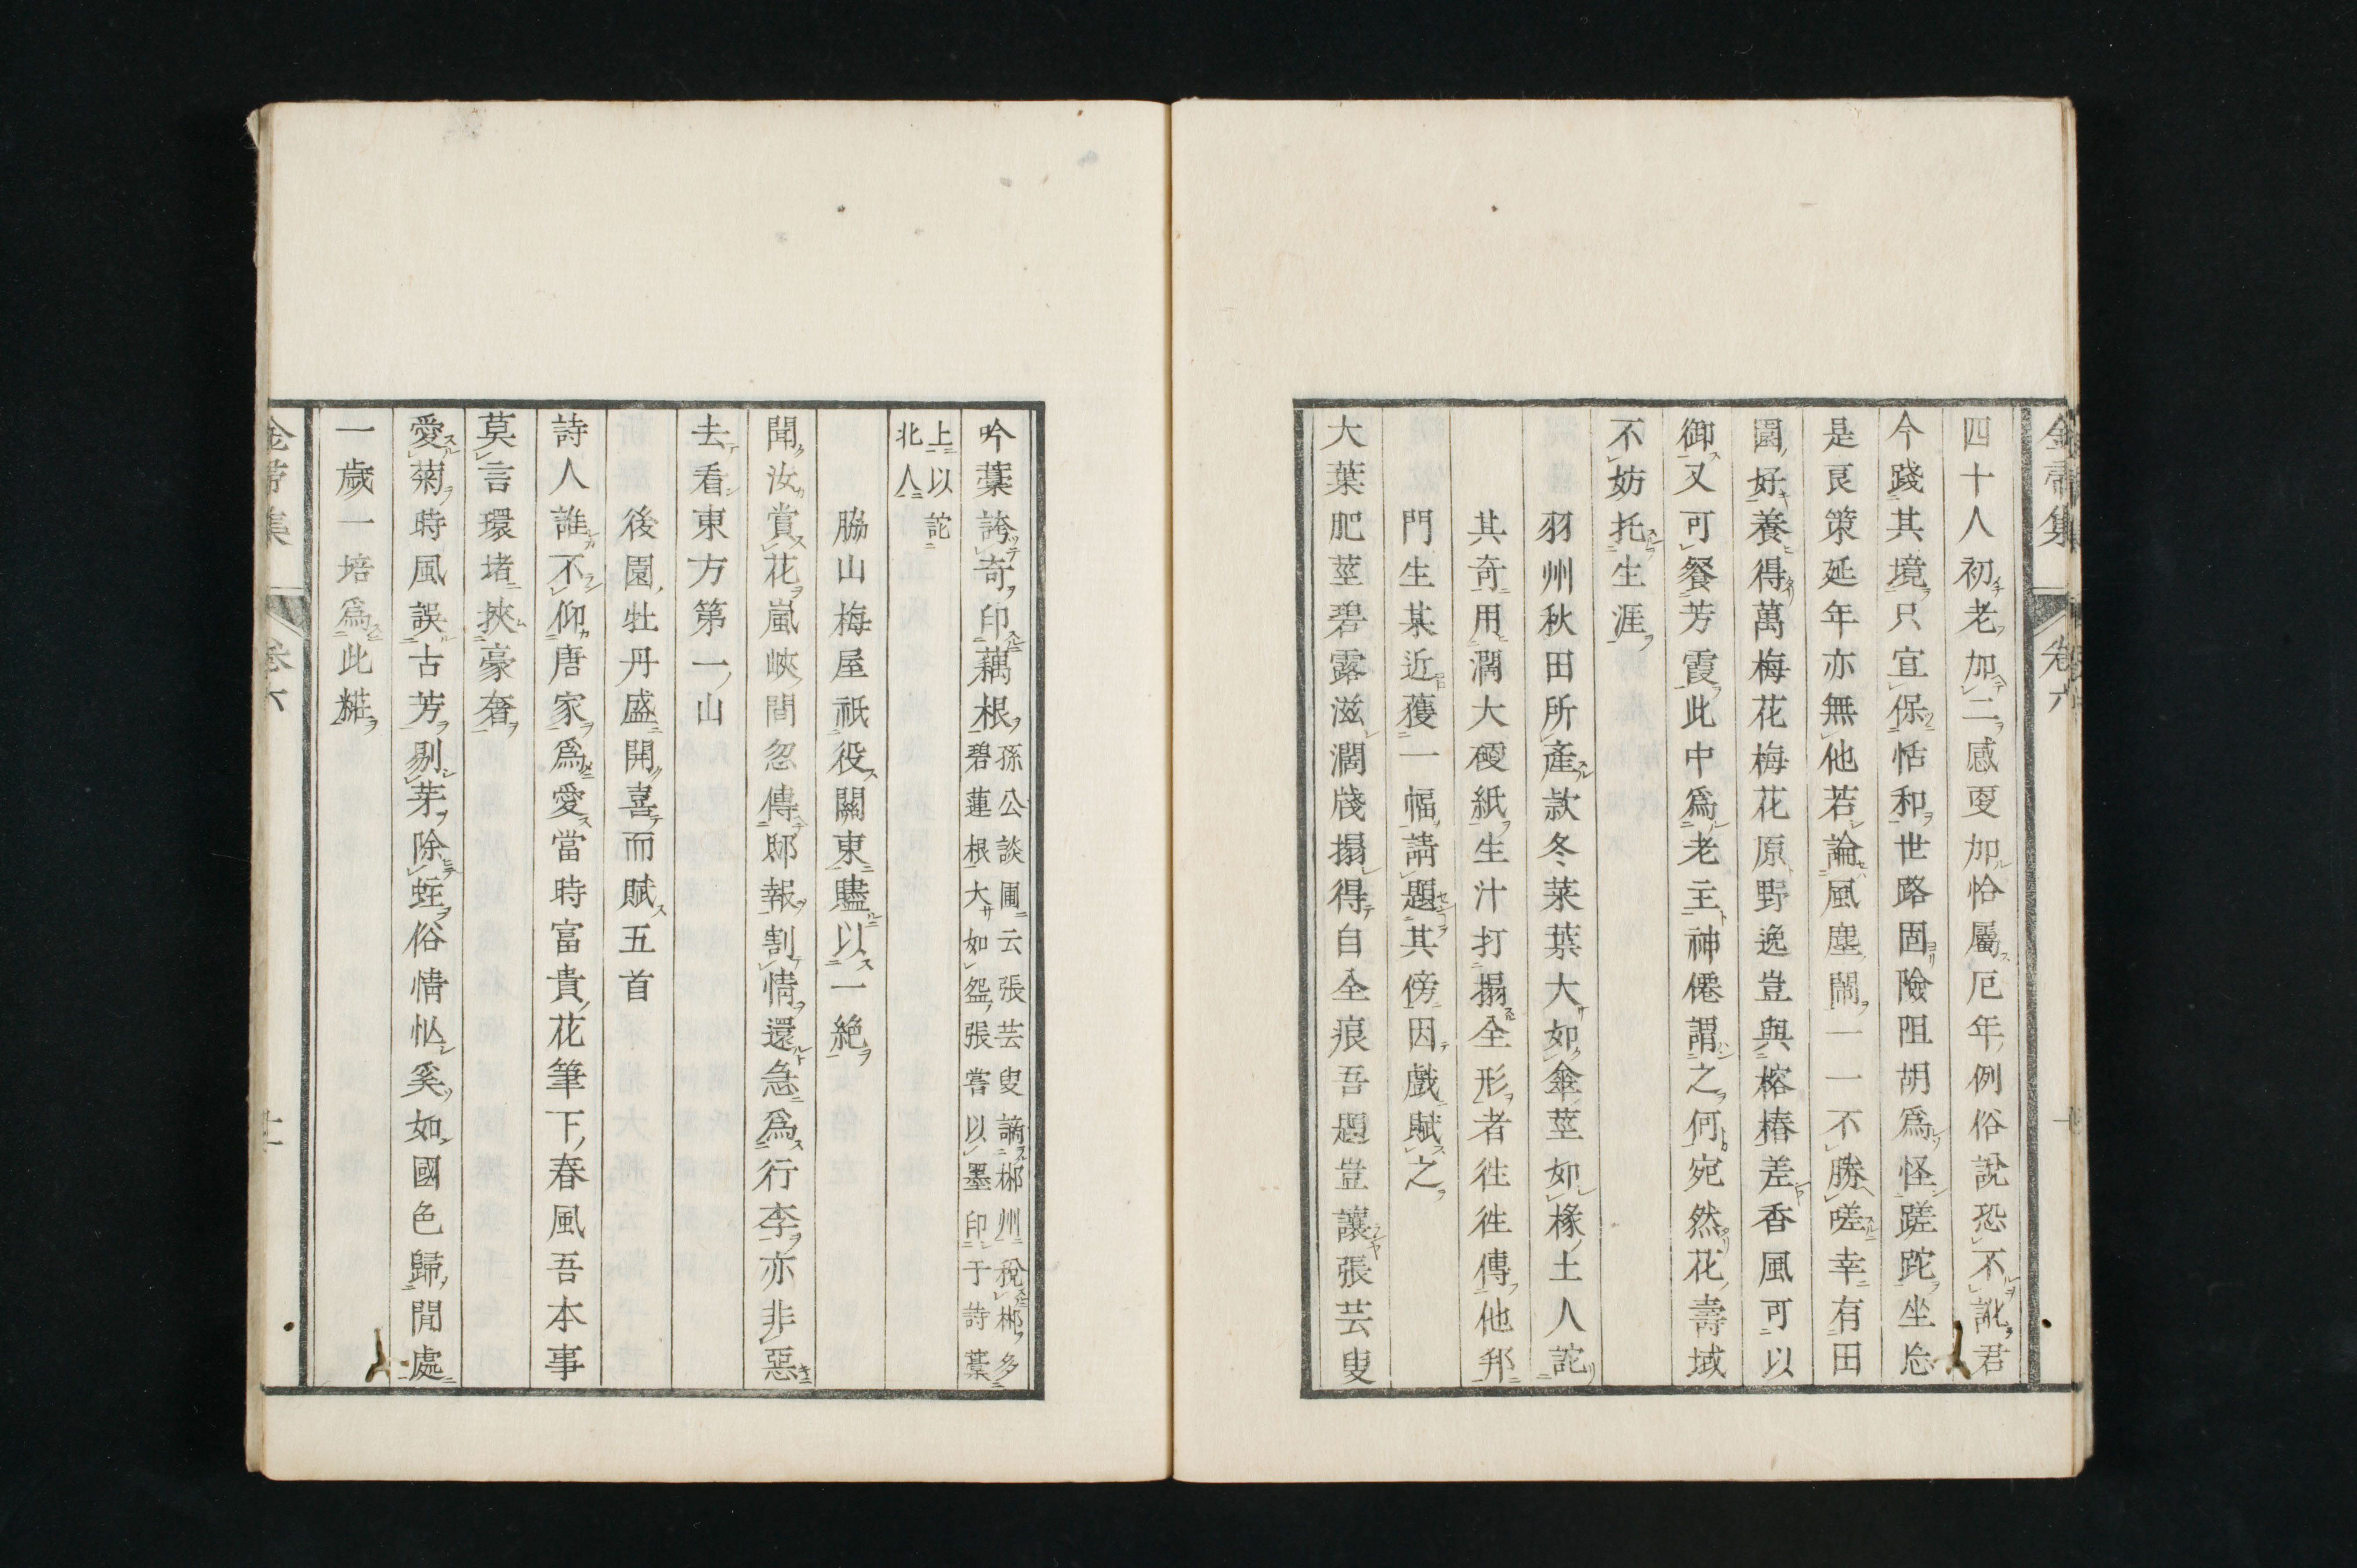 金帶集 卷六
四十人初老加二感更加恰屬厄年例俗說恐不訛君
今踐其境只宜保恬和世路固險阻胡爲怪蹉跎坐忘
是良策延年亦無他若論風塵鬧一一不勝嗟幸有田
園好養得萬梅花梅花原野逸豈與榕椿差香風可以
御又可餐芳霞此中爲老主神僊謂之何宛然花壽域
不妨托生涯
羽州秋田所產款冬菜葉大如傘莖如椽土人詑
其奇用濶大磤紙生汁打搨全形者徃徃傳他邦
門生某近獲一幅請題其傍因戲賦之
大葉肥莖碧露滋濶牋搨得自全痕吾題豈讓張芸叟
吟藁誇奇印藕根
孫公談圃云張芸叟謫郴州稅郴多
碧蓮根大如盌張嘗以墨印于詩藁
上以詑
北人
脇山梅屋祇役關東贐以一絶
聞汝賞花嵐峽間忽傳邸報割情還急爲行李亦非惡
去看東方第一山
後園牡丹盛開喜而賦五首
詩人誰不仰唐家爲愛當時富貴花筆下春風吾本事
莫言環堵挾豪奢
愛菊時風誤古芳剔芽除蛭俗情忙奚如國色歸閒處
一歲一培爲此糚
金帶集 卷六